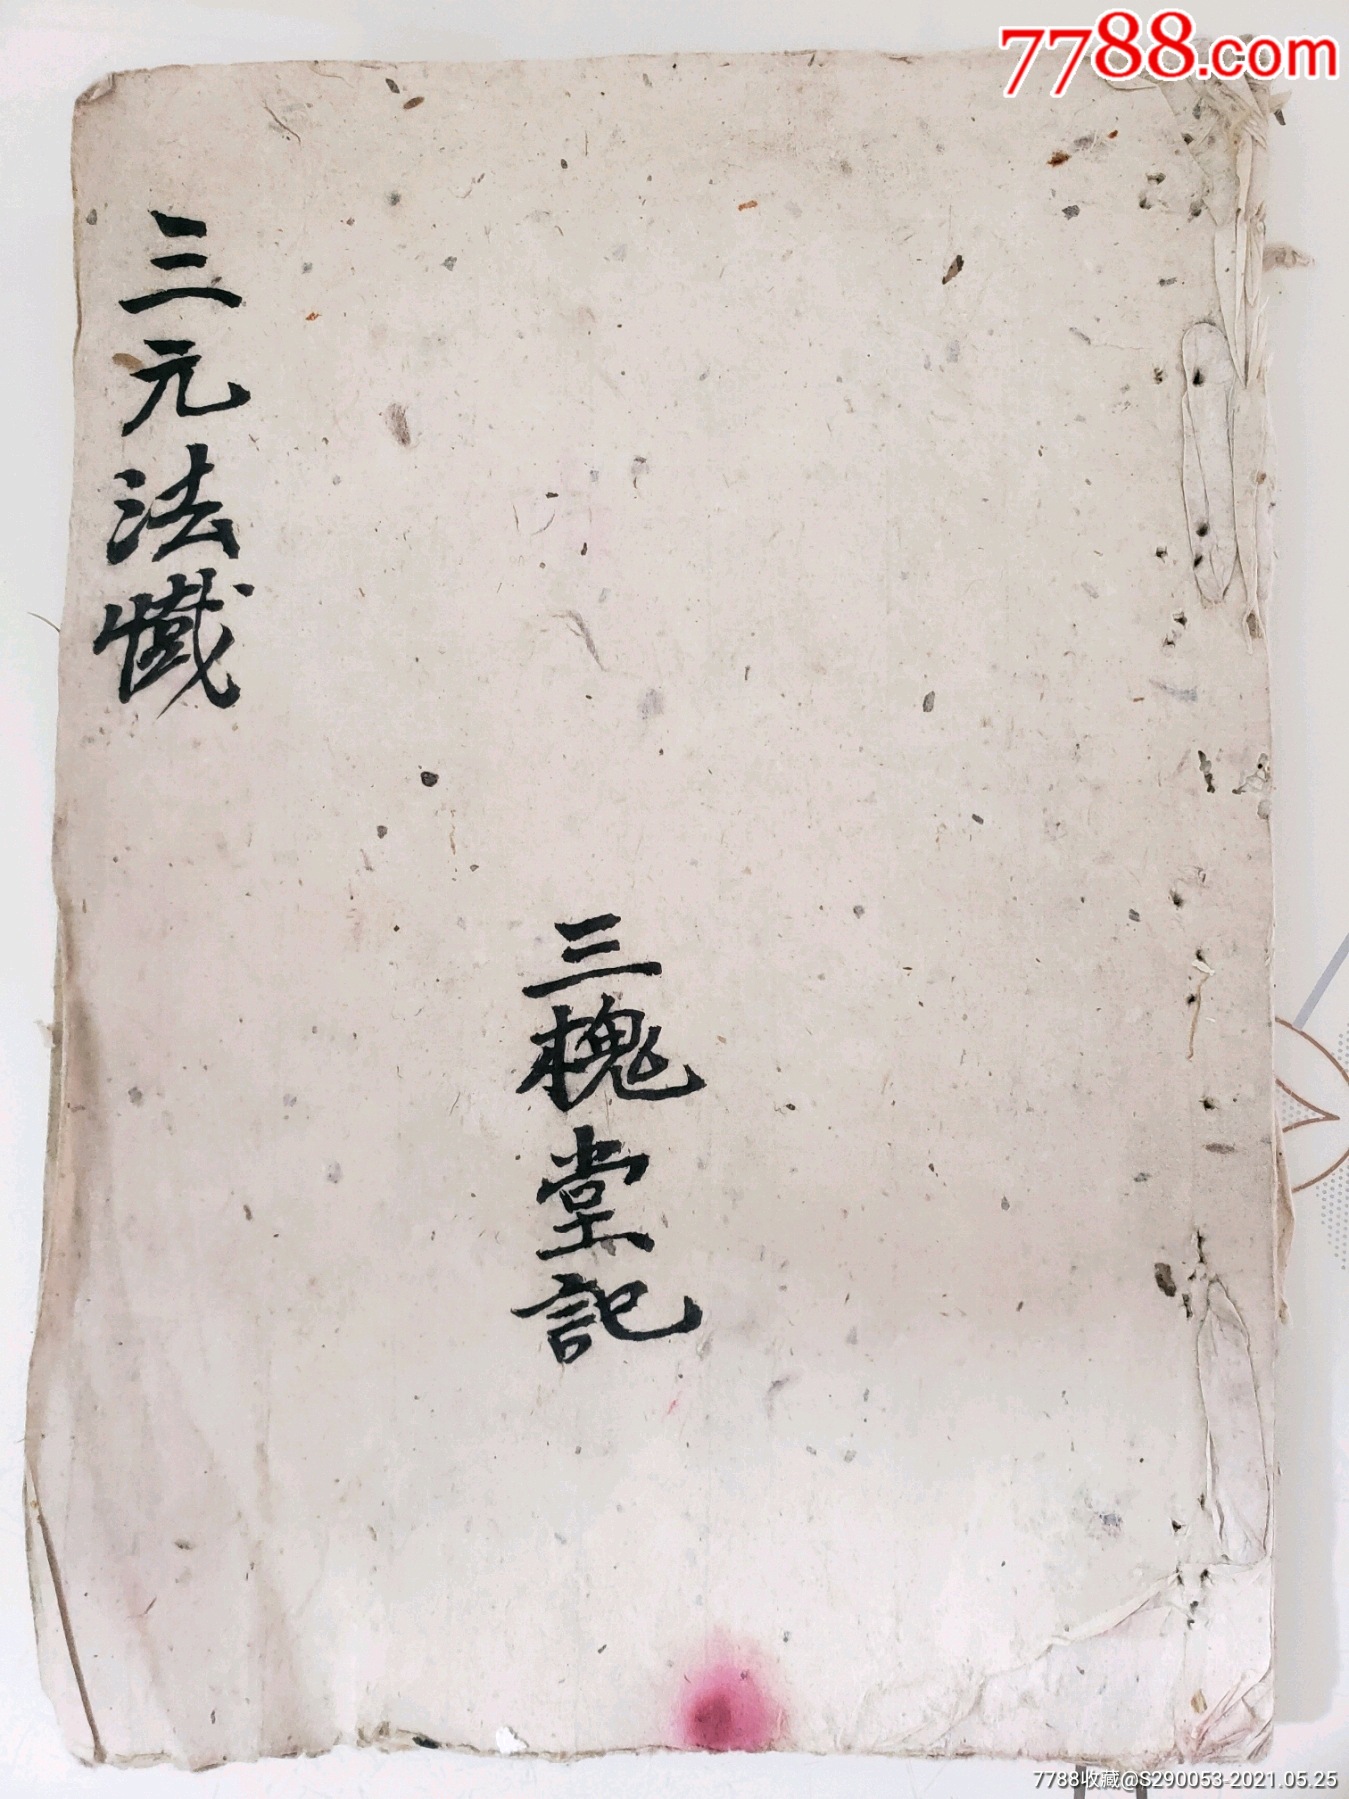 7788.com
三元法懺
三槐堂記
7788收藏@S290053-2021.05.25